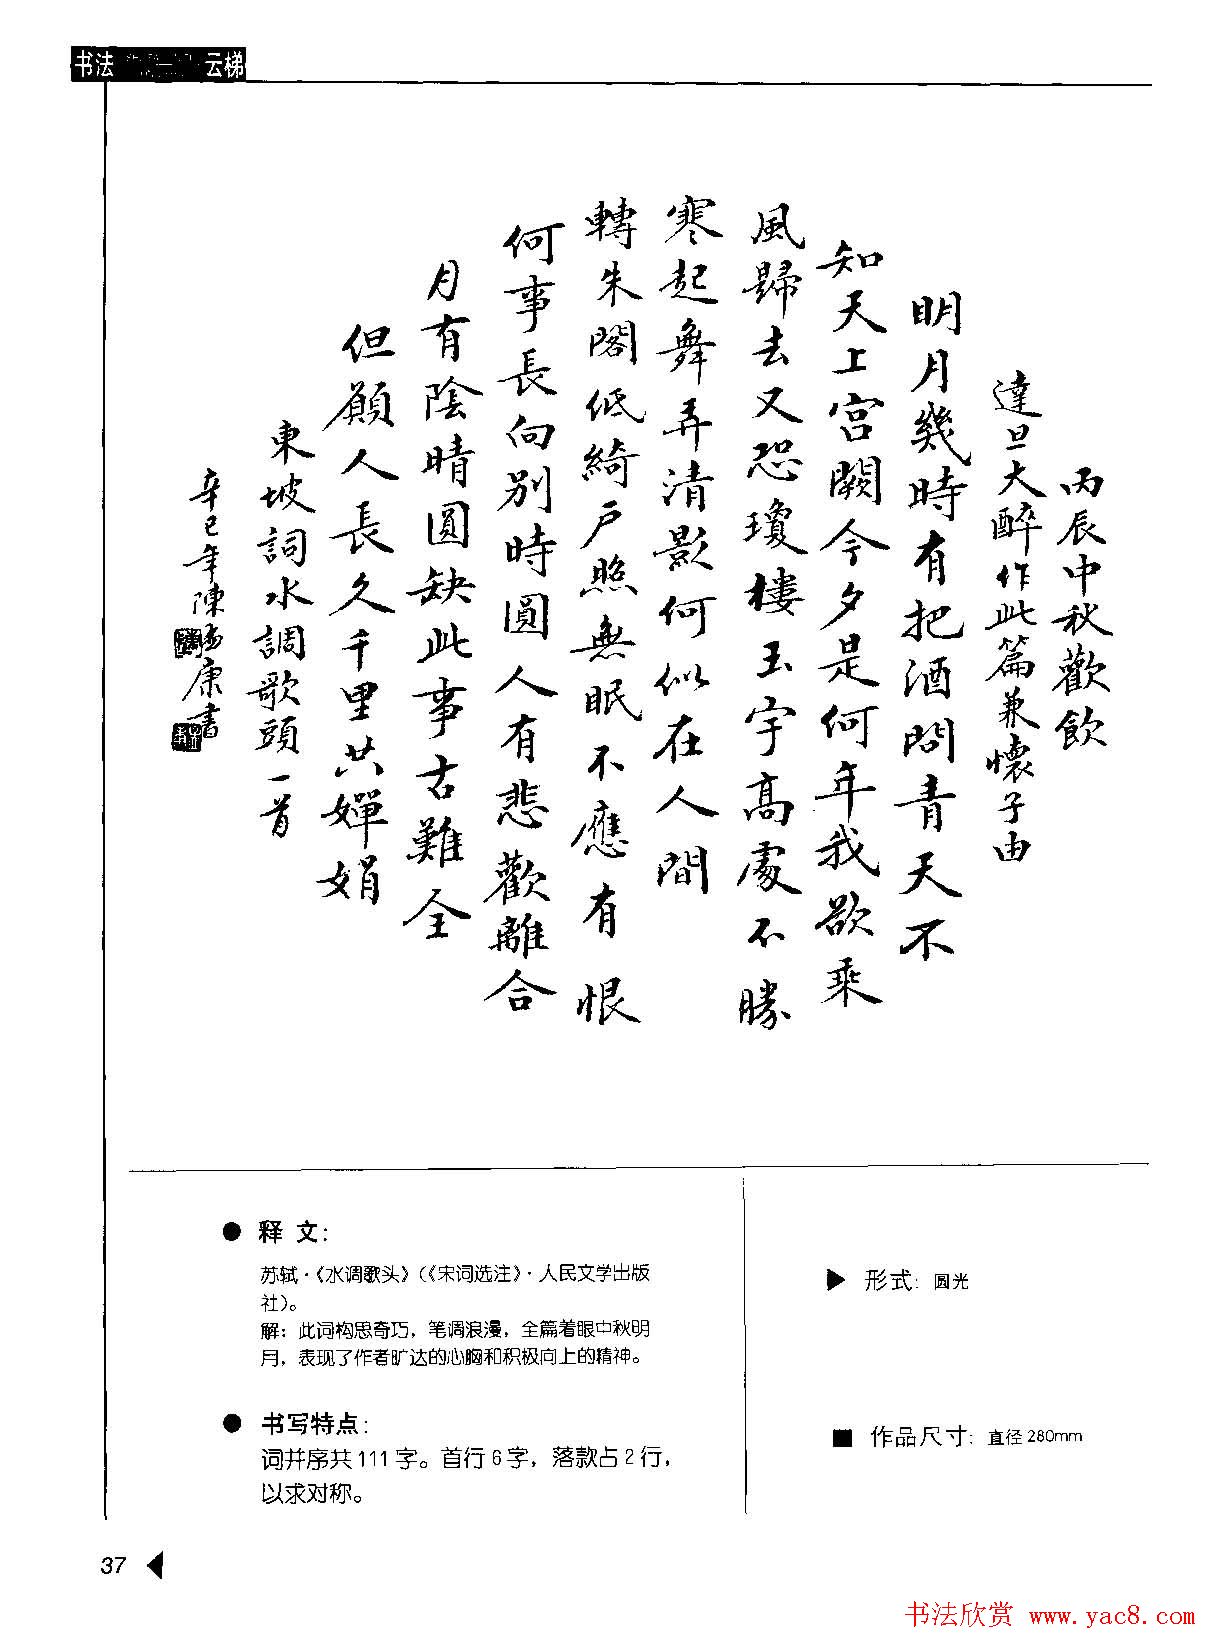 书法 一 云梯
丙辰中秋歡飲
達旦大醉作此篇兼懷子由
明月幾時有把酒問青天不
知天上宮闕今夕是何年我欲乘
風歸去又恐瓊樓玉宇高處不勝
寒起舞弄清影何似在人間
轉朱閣低綺戶照無眠不應有恨
何事長向別時圓人有悲歡離合
月有陰晴圓缺此事古難全
但願人長久千里共嬋娟
東坡詞水調歌頭一首
辛巳年陳 康書
● 释文：
苏轼·《水调歌头》（《宋词选注》·人民文学出版
社）。
解：此词构思奇巧，笔调浪漫，全篇着眼中秋明
月，表现了作者旷达的心胸和积极向上的精神。
● 书写特点：
词并序共111字。首行6字，落款占2行，
以求对称。
▶ 形式：圆光
■ 作品尺寸：直径280mm
37 ◀
书法欣赏 www.yac8.com